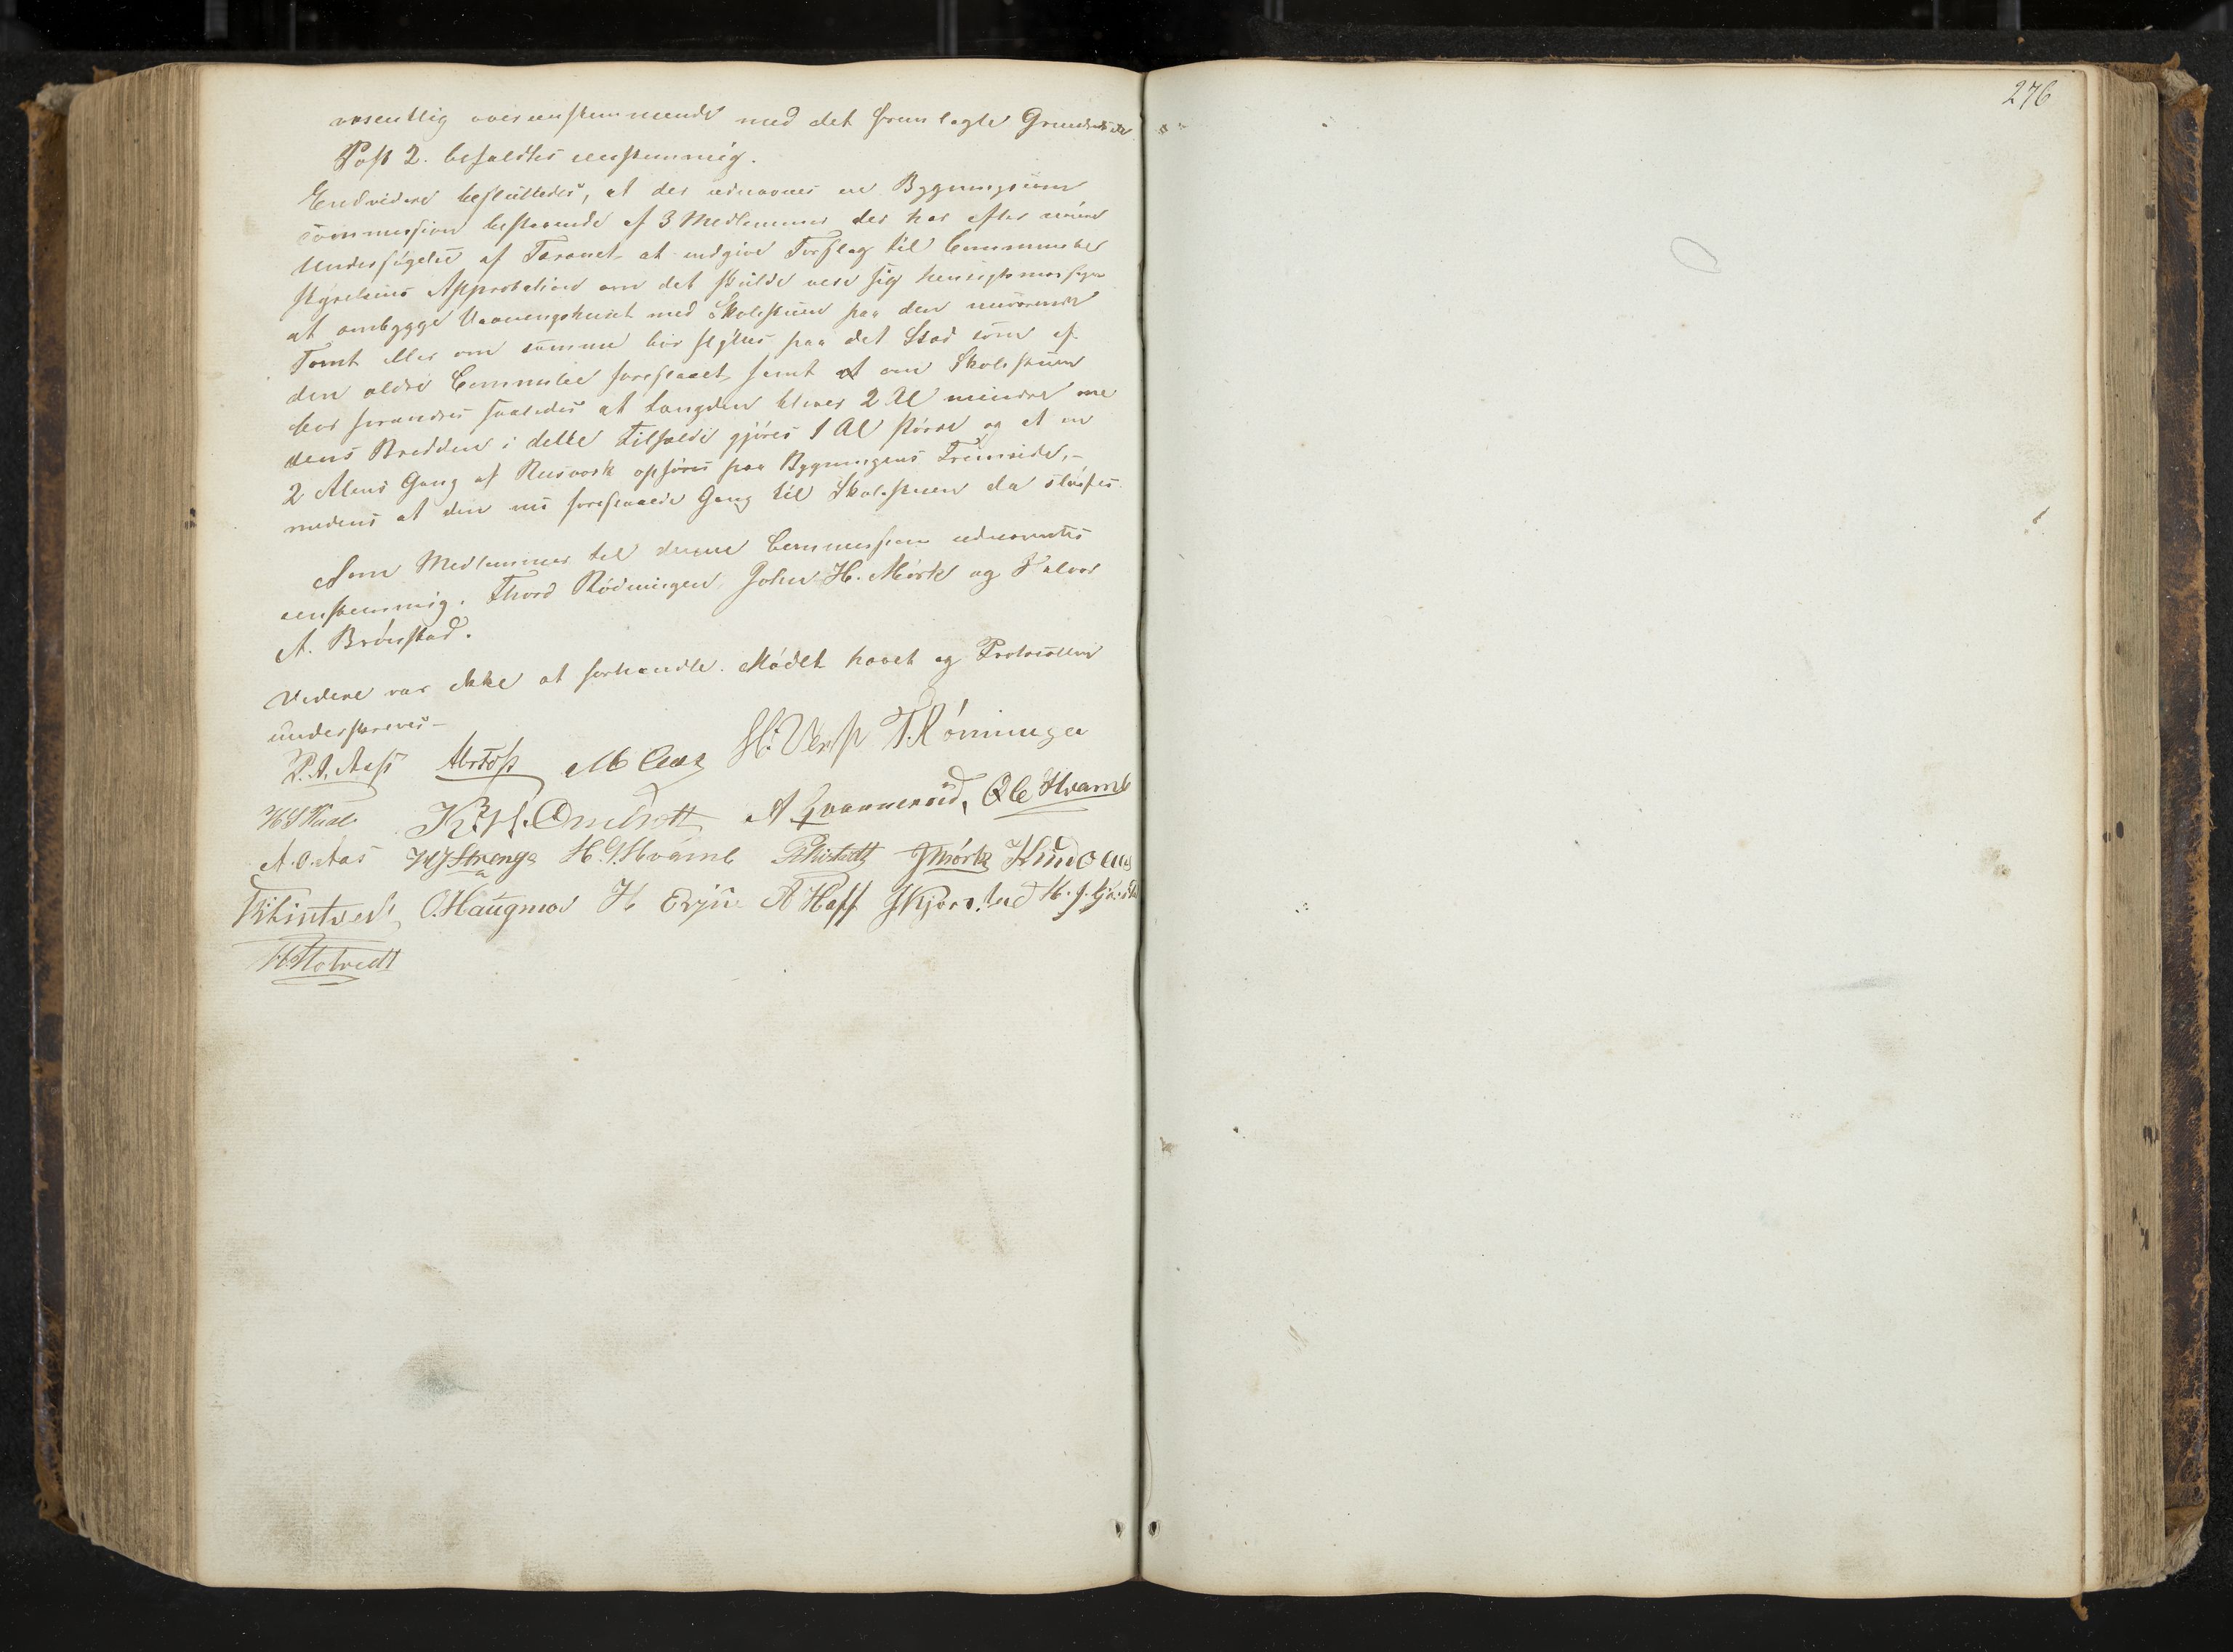 væsentlig overensstemmende med det fremlagte
Post 2. besaldtes eenstemmig.
Endvidere besluttedes, at der udnævnes en Bygnings
commission bestaaende af 3 Medlemmer der har efter nøiere
Undersøgelse af Terænet at indgive Forslag til Communebe
styrelsens Approbation om det skulde vese sig hensigtsmæssigere
at ombygge Vaaningshuset med Skolestuen paa den nuværende
Tomt eller om samme bør flyttes paa det Sted som af
den ældre Commitee foreslaaet, samt at om Skolestuen
bør forandres saaledes at Længden bliver 2 Al mindre me
dens Bredden i dette Tilfælde gjøres 1 Al større og at en
2 Alens Gang af Reisværk opføres paa Bygningens Fremside,-
medens at den nu foreslaaede Gang til Skolestuen da sløifes.
Som Medlemmer til denne Commission udnævntes
eenstemmig. Thord Rødningen, John H. Mørk og Halvor
A. Brønstad.
Videre var ikke at forhandle. Mødet hævet og Protocollen
underskreves-
P. A. Aass M Aas H. Verp T. Rønningen
K. H. Omholtt A Qvanneroid, O C Hvamb
A. O. Aas H J Strenge H. G. Hvamb J Mørk Knud O Aas
O. Haugmo A Hoff
H. Hotvedt
276